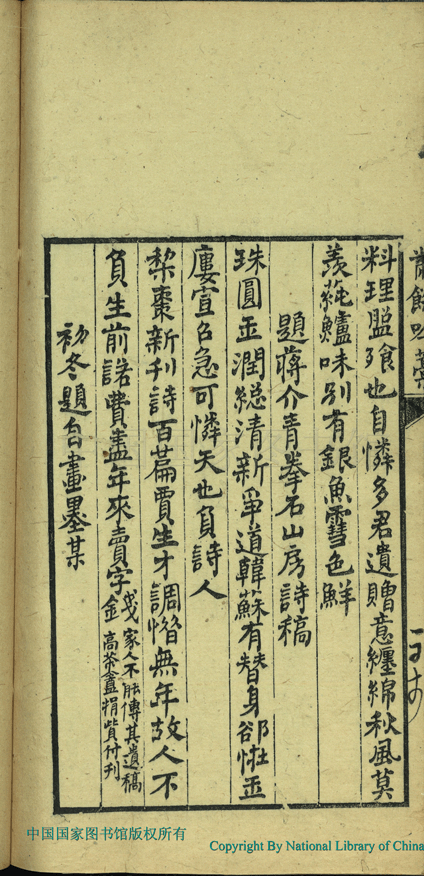 料理盬飱也自憐多君遺贈意纏綿秋風莫
羨蒓鱸味別有銀魚雪色鮮
題蔣介青拳石山房詩稿
珠圓玉潤総清新爭道韓蘇有替身郤恠玉
廔宣召急可憐天也負詩人
棃棗新刊詩百篇賈生才調惜無年故人不
負生前諾費盡年來賣字金戔家人不能傳其遺稿
高茶盦捐貲付刊
初冬題自畫墨某
中国国家图书馆版权所有
Copyright By National Library of China